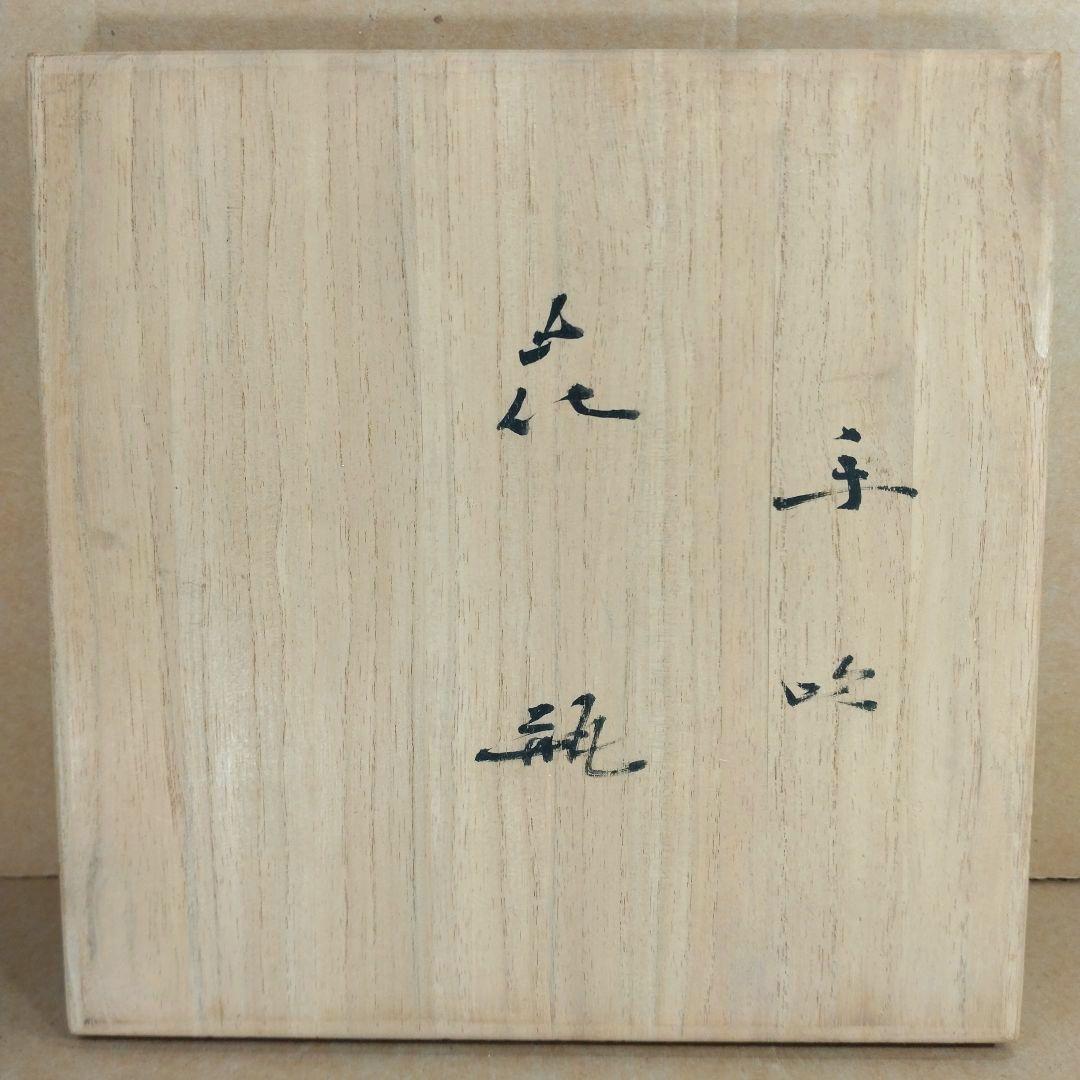 手吹
花瓶